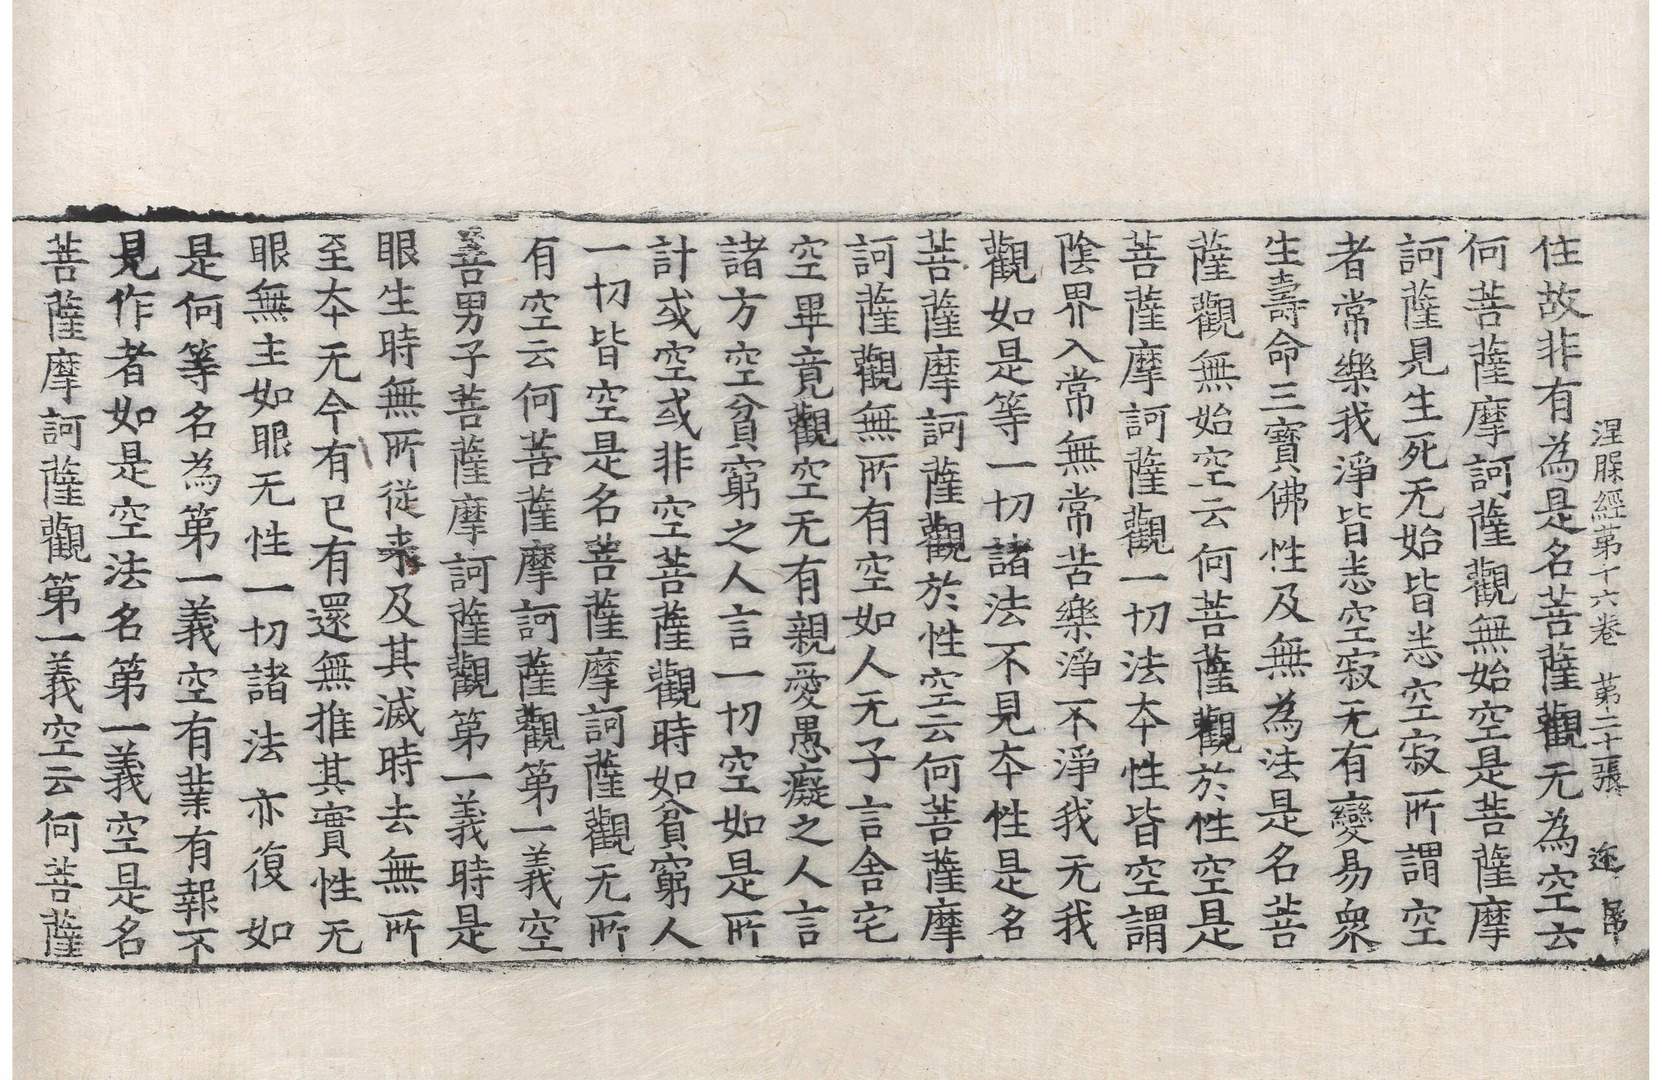 涅槃經第十六卷 第二十張 迩
住故非有為是名菩薩觀无為空云
何菩薩摩訶薩觀無始空是菩薩摩
訶薩見生死无始皆悉空寂所謂空
者常樂我淨皆悉空寂无有變易衆
生壽命三寶佛性及無為法是名菩
薩觀無始空云何菩薩觀於性空是
菩薩摩訶薩觀一切法夲性皆空謂
陰界入常無常苦樂淨不淨我无我
觀如是等一切諸法不見夲性是名
菩薩摩訶薩觀於性空云何菩薩摩
訶薩觀無所有空如人无子言舍宅
空畢竟觀空无有親愛愚癡之人言
諸方空貧窮之人言一切空如是所
計或空或非空菩薩觀時如貧窮人
一切皆空是名菩薩摩訶薩觀无所
有空云何菩薩摩訶薩觀第一義空
善男子菩薩摩訶薩觀第一義時是
眼生時無所從来及其滅時去無所
至夲无今有已有還無推其實性无
眼無主如眼无性一切諸法亦復如
是何等名為第一義空有業有報不
見作者如是空法名第一義空是名
菩薩摩訶薩觀第一義空云何菩薩